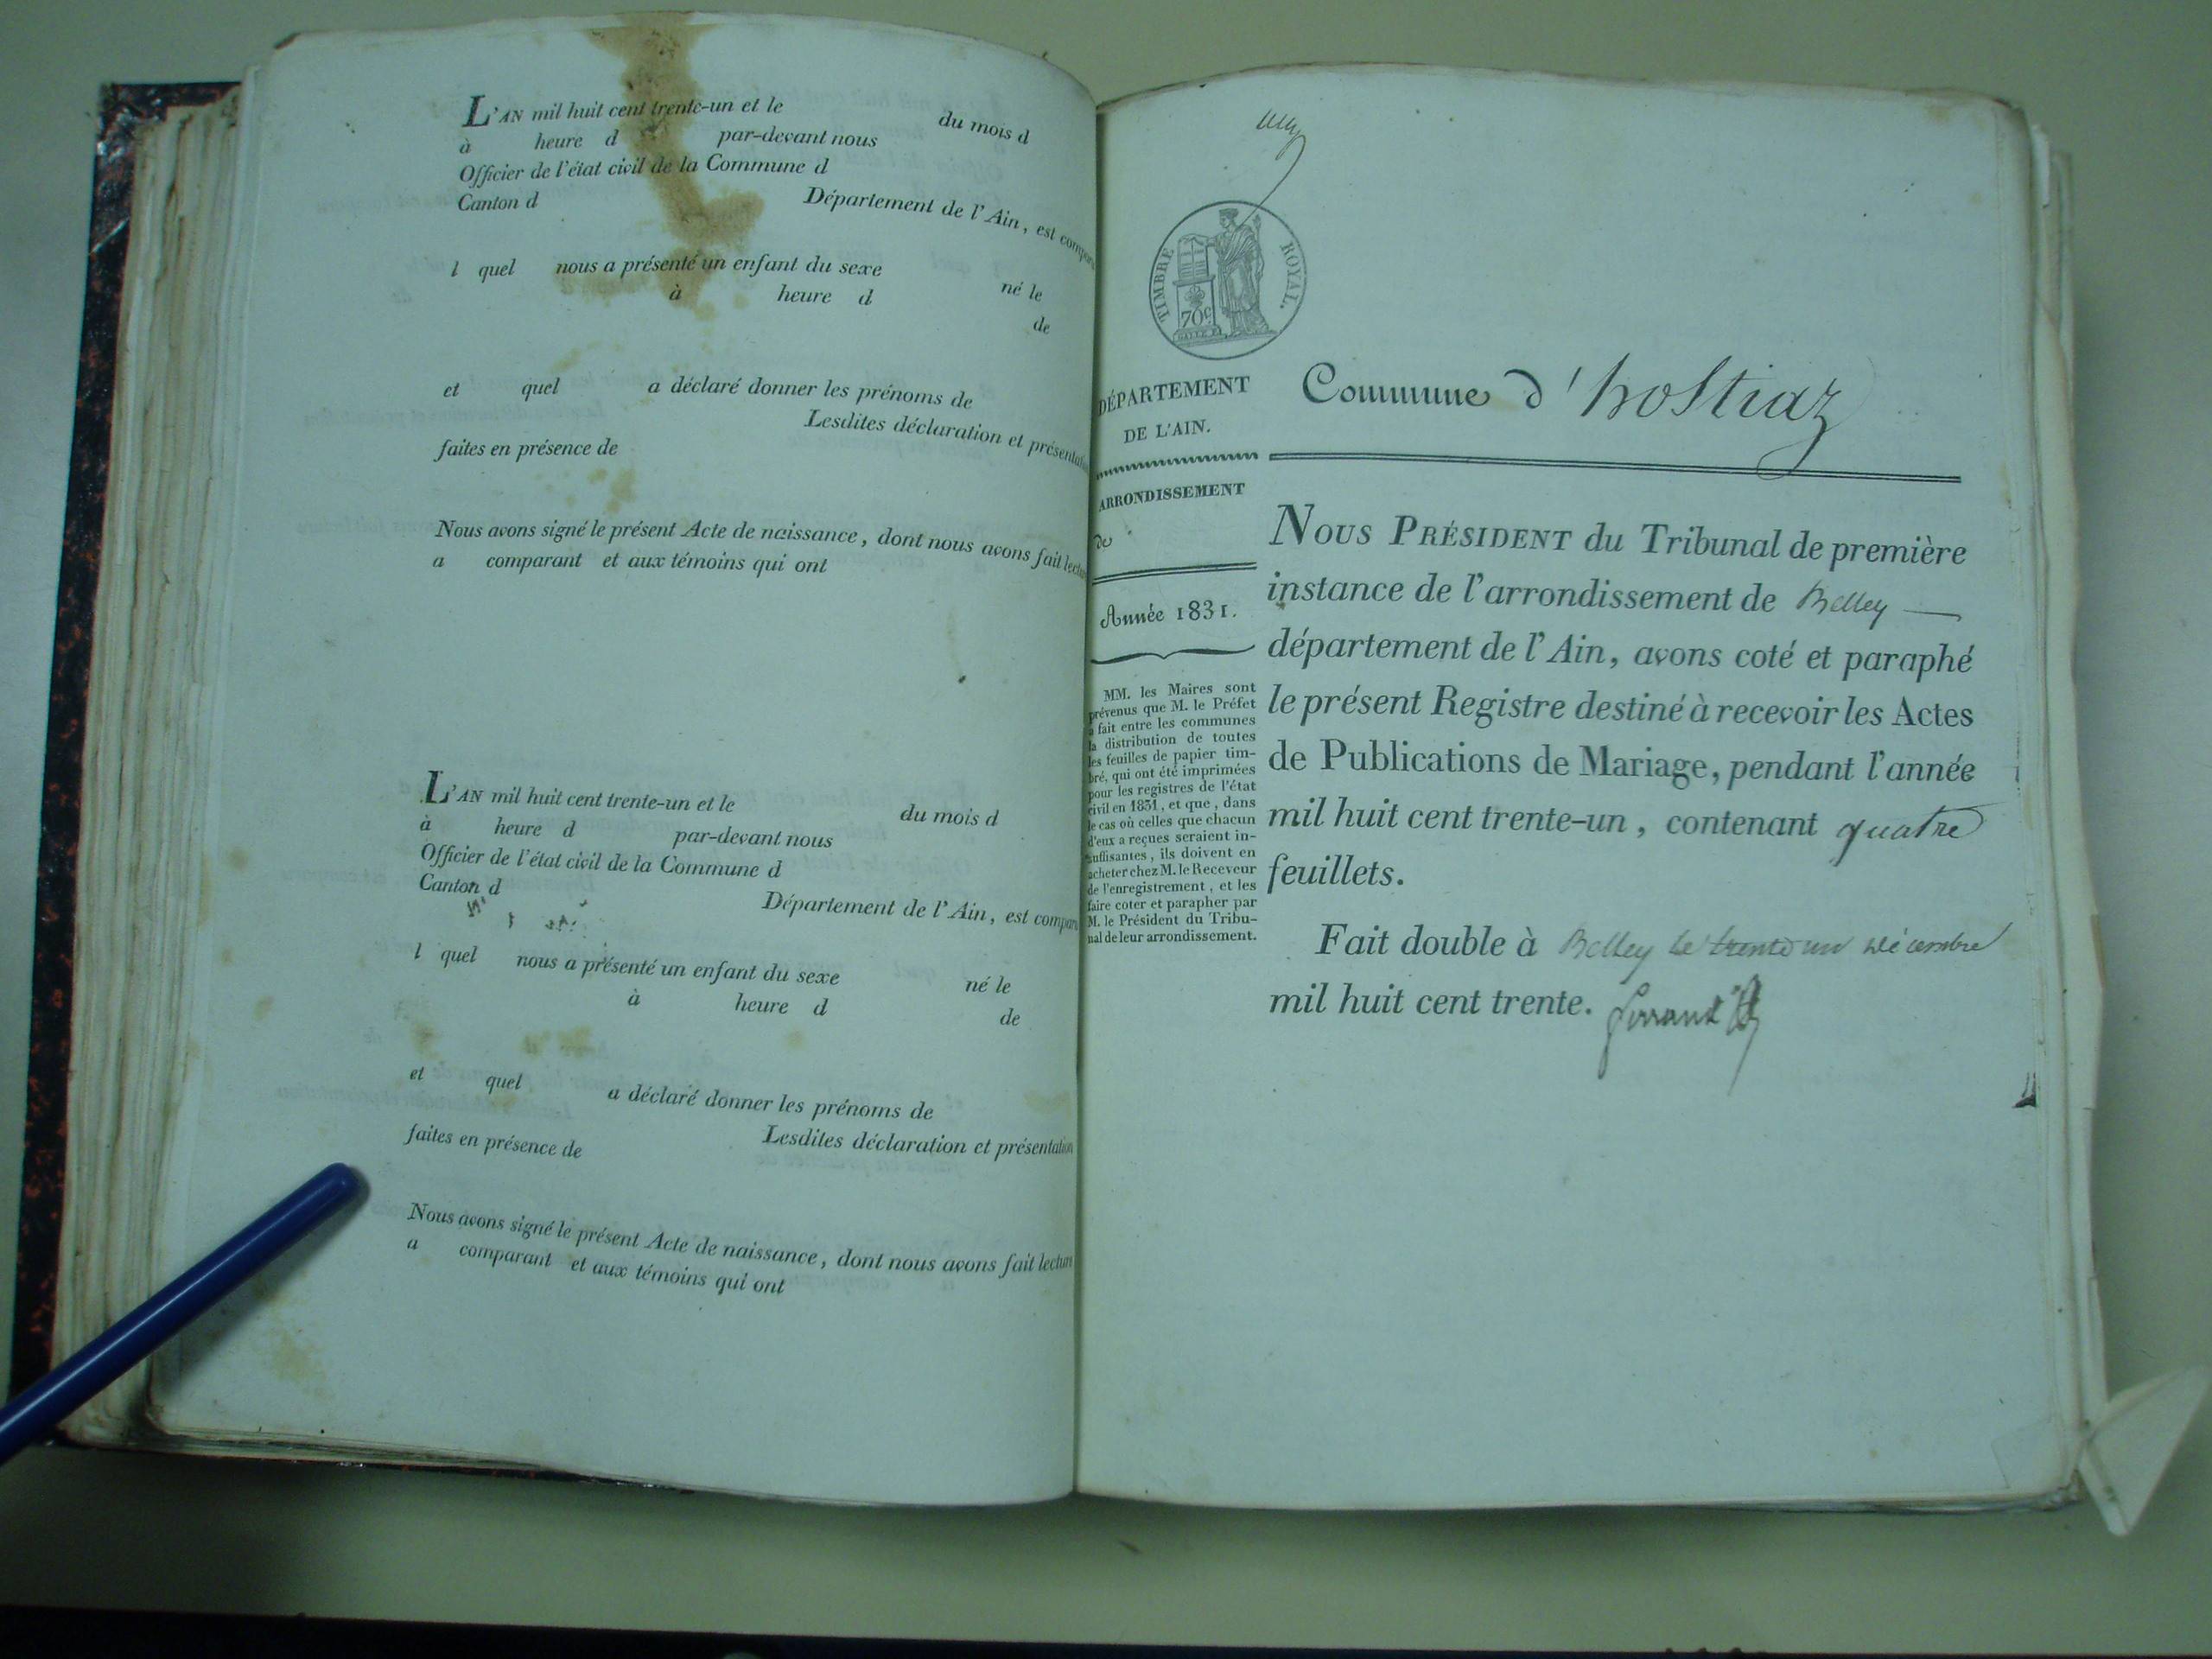 L'AN mil huit cent trente-un et le du mois d
à heure d par-devant nous
Officier de l'état civil de la Commune d
Canton d Département de l'Ain, est compar
l quel nous a présenté un enfant du sexe né le
à heure d de
et quel a déclaré donner les prénoms de
Lesdites déclaration et présentation
faites en présence de
Nous avons signé le présent Acte de naissance, dont nous avons fait lecture
a comparant et aux témoins qui ont
L'AN mil huit cent trente-un et le du mois d
à heure d par-devant nous
Officier de l'état civil de la Commune d
Canton d Département de l'Ain, est compar
l quel nous a présenté un enfant du sexe né le
à heure d de
et quel a déclaré donner les prénoms de
Lesdites déclaration et présentation
faites en présence de
Nous avons signé le présent Acte de naissance, dont nous avons fait lecture
a comparant et aux témoins qui ont
TIMBRE ROYAL.
70c
DÉPARTEMENT
DE L'AIN.
ARRONDISSEMENT
de
Année 1831.
MM. les Maires sont
prévenus que M. le Préfet
a fait entre les communes
la distribution de toutes
les feuilles de papier tim-
bré, qui ont été imprimées
pour les registres de l'état
civil en 1831, et que, dans
le cas où celles que chacun
d'eux a reçues seraient in-
suffisantes, ils doivent en
acheter chez M. le Receveur
de l'enregistrement, et les
faire coter et parapher par
M. le Président du Tribu-
nal de leur arrondissement.
Commune d'hostiaz
NOUS PRÉSIDENT du Tribunal de première
instance de l'arrondissement de Belley
département de l'Ain, avons coté et paraphé
le présent Registre destiné à recevoir les Actes
de Publications de Mariage, pendant l'année
mil huit cent trente-un, contenant quatre
feuillets.
Fait double à Belley le trente un décembre
mil huit cent trente.